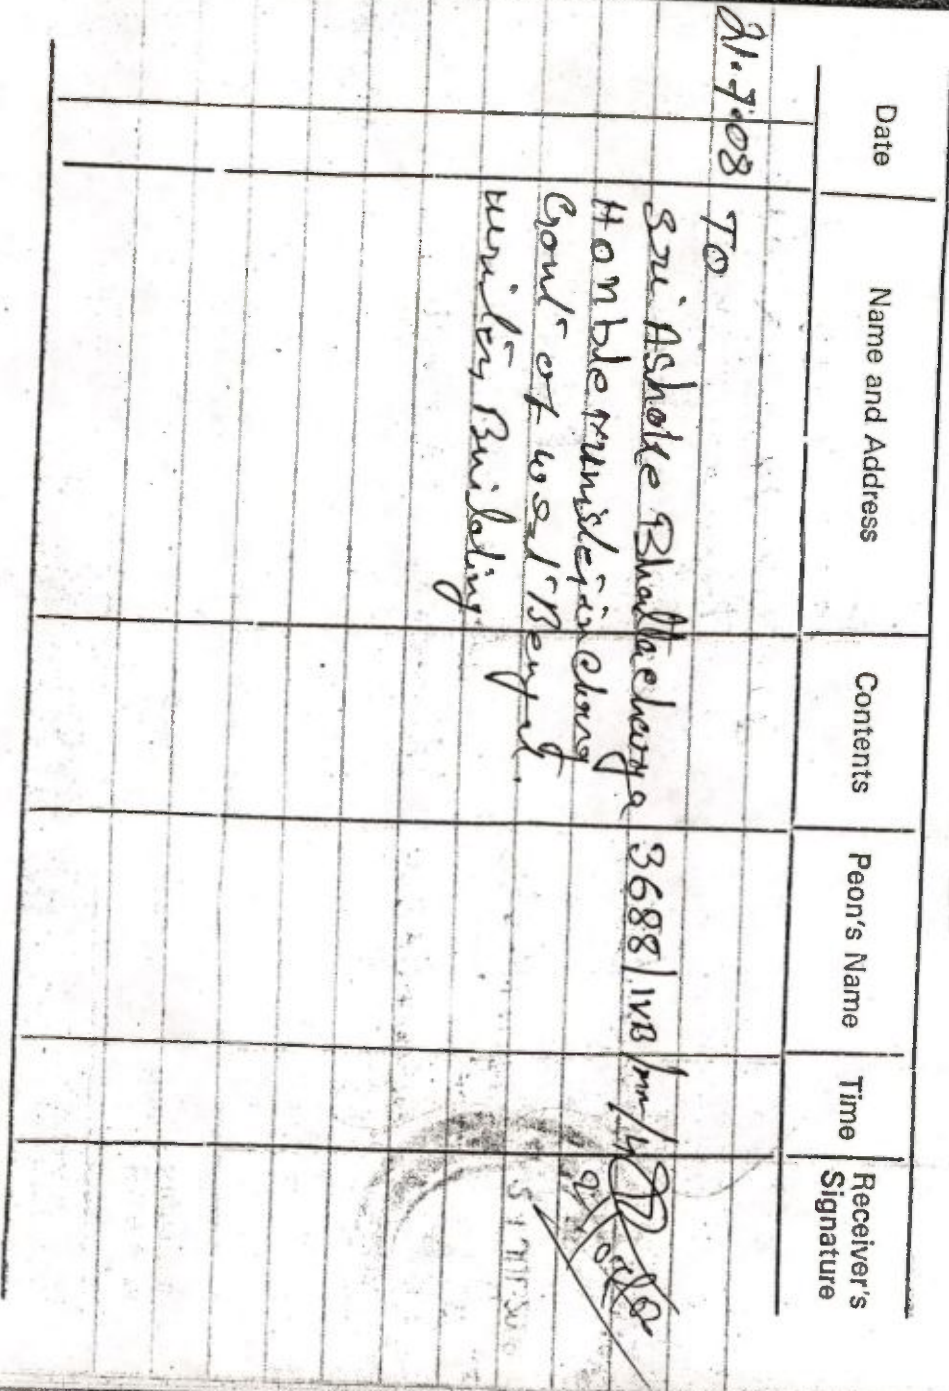 Date Name and Address Contents Peon's Name Time Receiver's Signature
21.7.08 To
Sri Ashoke Bhattacharya 3688/IVB/mm/
Honble minister in charg
Govt of West Bengal
writers Building